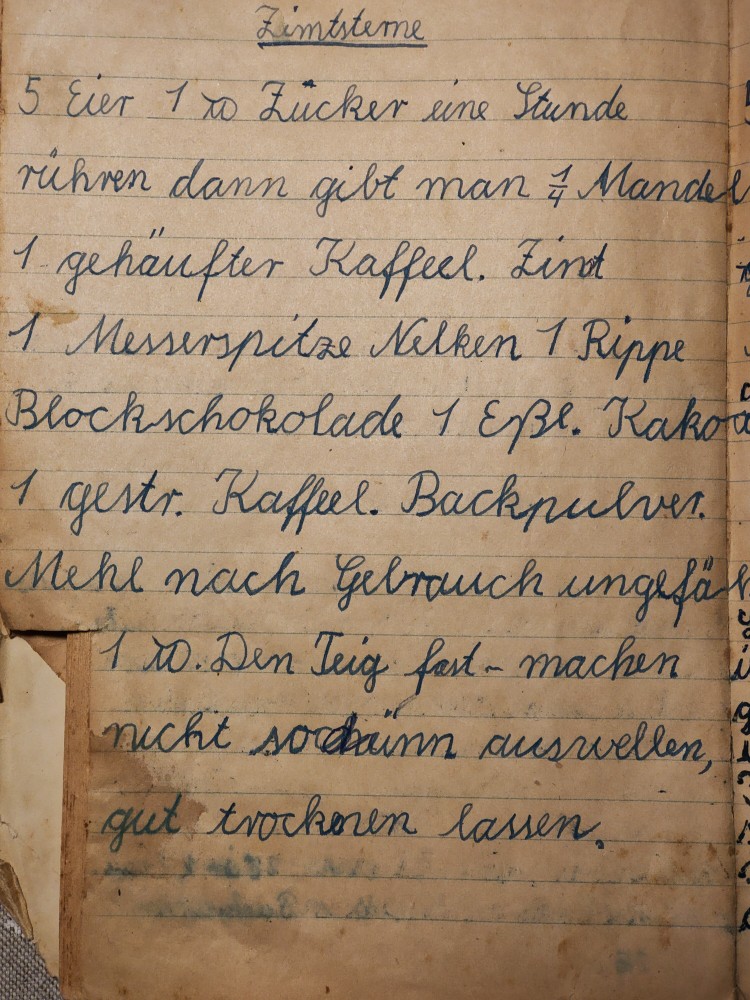 Zimtsterne
5 Eier 1 ℔ Zucker eine Stunde
rühren dann gibt man 1/4 Mandel
1 gehäufter Kaffeel. Zimt
1 Messerspitze Nelken 1 Rippe
Blockschokolade 1 Eßl. Kakao
1 gestr. Kaffeel. Backpulver.
Mehl nach Gebrauch ungefäh
1 ℔. Den Teig fest - machen
nicht so dünn auswellen,
gut trocknen lassen.